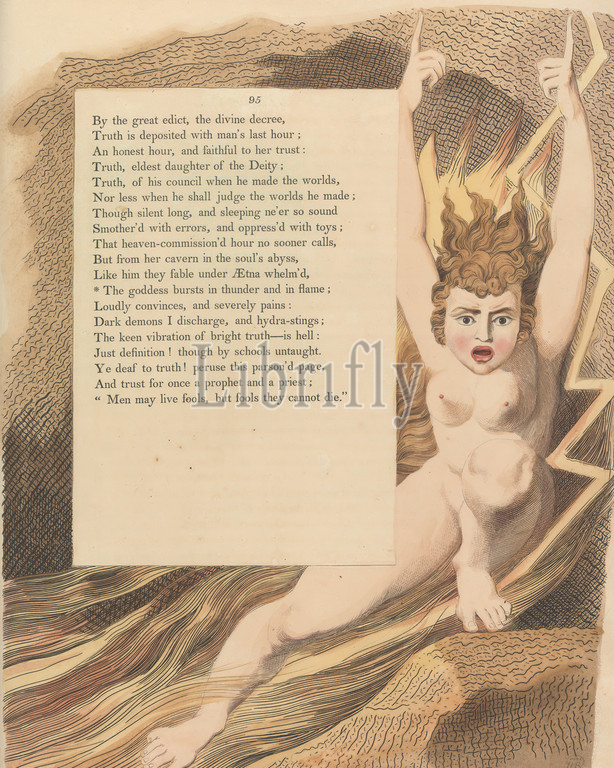 95
By the great edict, the divine decree,
Truth is deposited with man's last hour;
An honest hour, and faithful to her trust:
Truth, eldest daughter of the Deity;
Truth, of his council when he made the worlds,
Nor less when he shall judge the worlds he made;
Though silent long, and sleeping ne'er so sound
Smother'd with errors, and oppress'd with toys;
That heaven-commission'd hour no sooner calls,
But from her cavern in the soul's abyss,
Like him they fable under Ætna whelm'd,
* The goddess bursts in thunder and in flame;
Loudly convinces, and severely pains:
Dark demons I discharge, and hydra-stings;
The keen vibration of bright truth—is hell:
Just definition! though by schools untaught.
Ye deaf to truth! peruse this parson'd page,
And trust for once a prophet and a priest;
“ Men may live fools, but fools they cannot die.”
Librifly